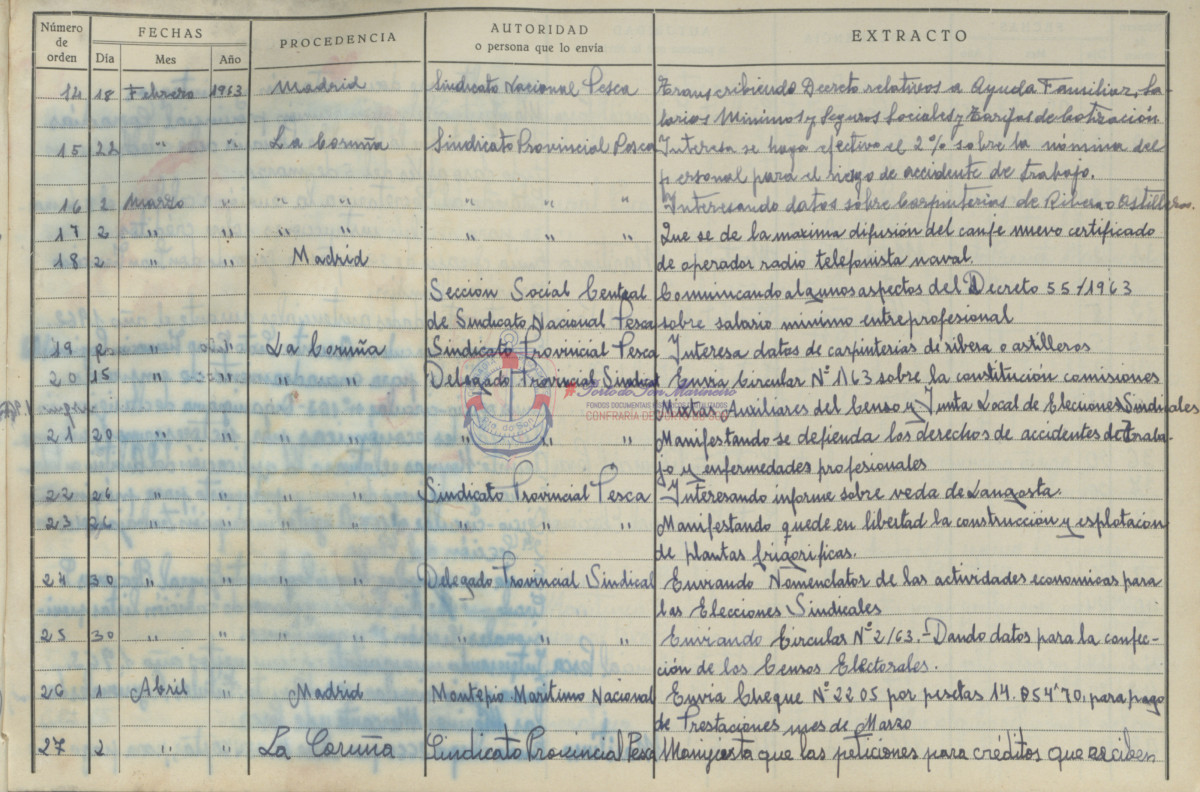 Número de orden FECHAS PROCEDENCIA AUTORIDAD o persona que lo envía EXTRACTO
Día Mes Año
14 18 Febrero 1963 Madrid Sindicato Nacional Pesca Transcribiendo Decreto relativos a Ayuda Familiar, Sa-
larios Minimos y Seguros Sociales y Tarifas de Cotización
15 22 " " La Coruña Sindicato Provincial Pesca Interesa se haga efectivo el 2% sobre la nómina del
personal para el riesgo de accidente de trabajo.
16 2 Marzo " " " " " " Interesando datos sobre Carpinterias de Ribera o Astilleros.
17 2 " " " " " " " Que se de la maxima difusión del canje nuevo certificado
18 2 " " Madrid de operador radio telefonista naval.
Sección Social Central Comunicando algunos aspectos del Decreto 55/1963
de Sindicato Nacional Pesca sobre salario minimo entreprofesional
19 " La Coruña Sindicato Provincial Pesca Interesa datos de carpinterias de ribera o astilleros
20 15 " " " " Delegado Provincial Sindical Envia Circular Nº 1/63 sobre la constitución comisiones
Mixtas Auxiliares del Censo y Junta Local de Elecciones Sindicales
21 20 " " " " " " " Manifestando se defienda los derechos de accidentes de Traba-
jo y enfermedades profesionales
22 26 " " " " Sindicato Provincial Pesca Interesando informe sobre veda de Langosta.
23 26 " " " " " " " Manifestando quede en libertad la construcción y esplotación
de plantas frigorificas.
24 30 " " " " Delegado Provincial Sindical Enviando Nomenclator de las actividades economicas para
las Elecciones Sindicales
25 30 " " " " " " " Enviando Circular Nº 2/63.- Dando datos para la confec-
ción de los Censos Electorales.
26 1 Abril " Madrid Montepio Maritimo Nacional Envia Cheque Nº 2205 por pesetas 14.854'70, para pago
de Prestaciones mes de Marzo
27 2 " " La Coruña Sindicato Provincial Pesca Manifiesta que las peticiones para créditos que reciben
# Porto do Son Marineiro